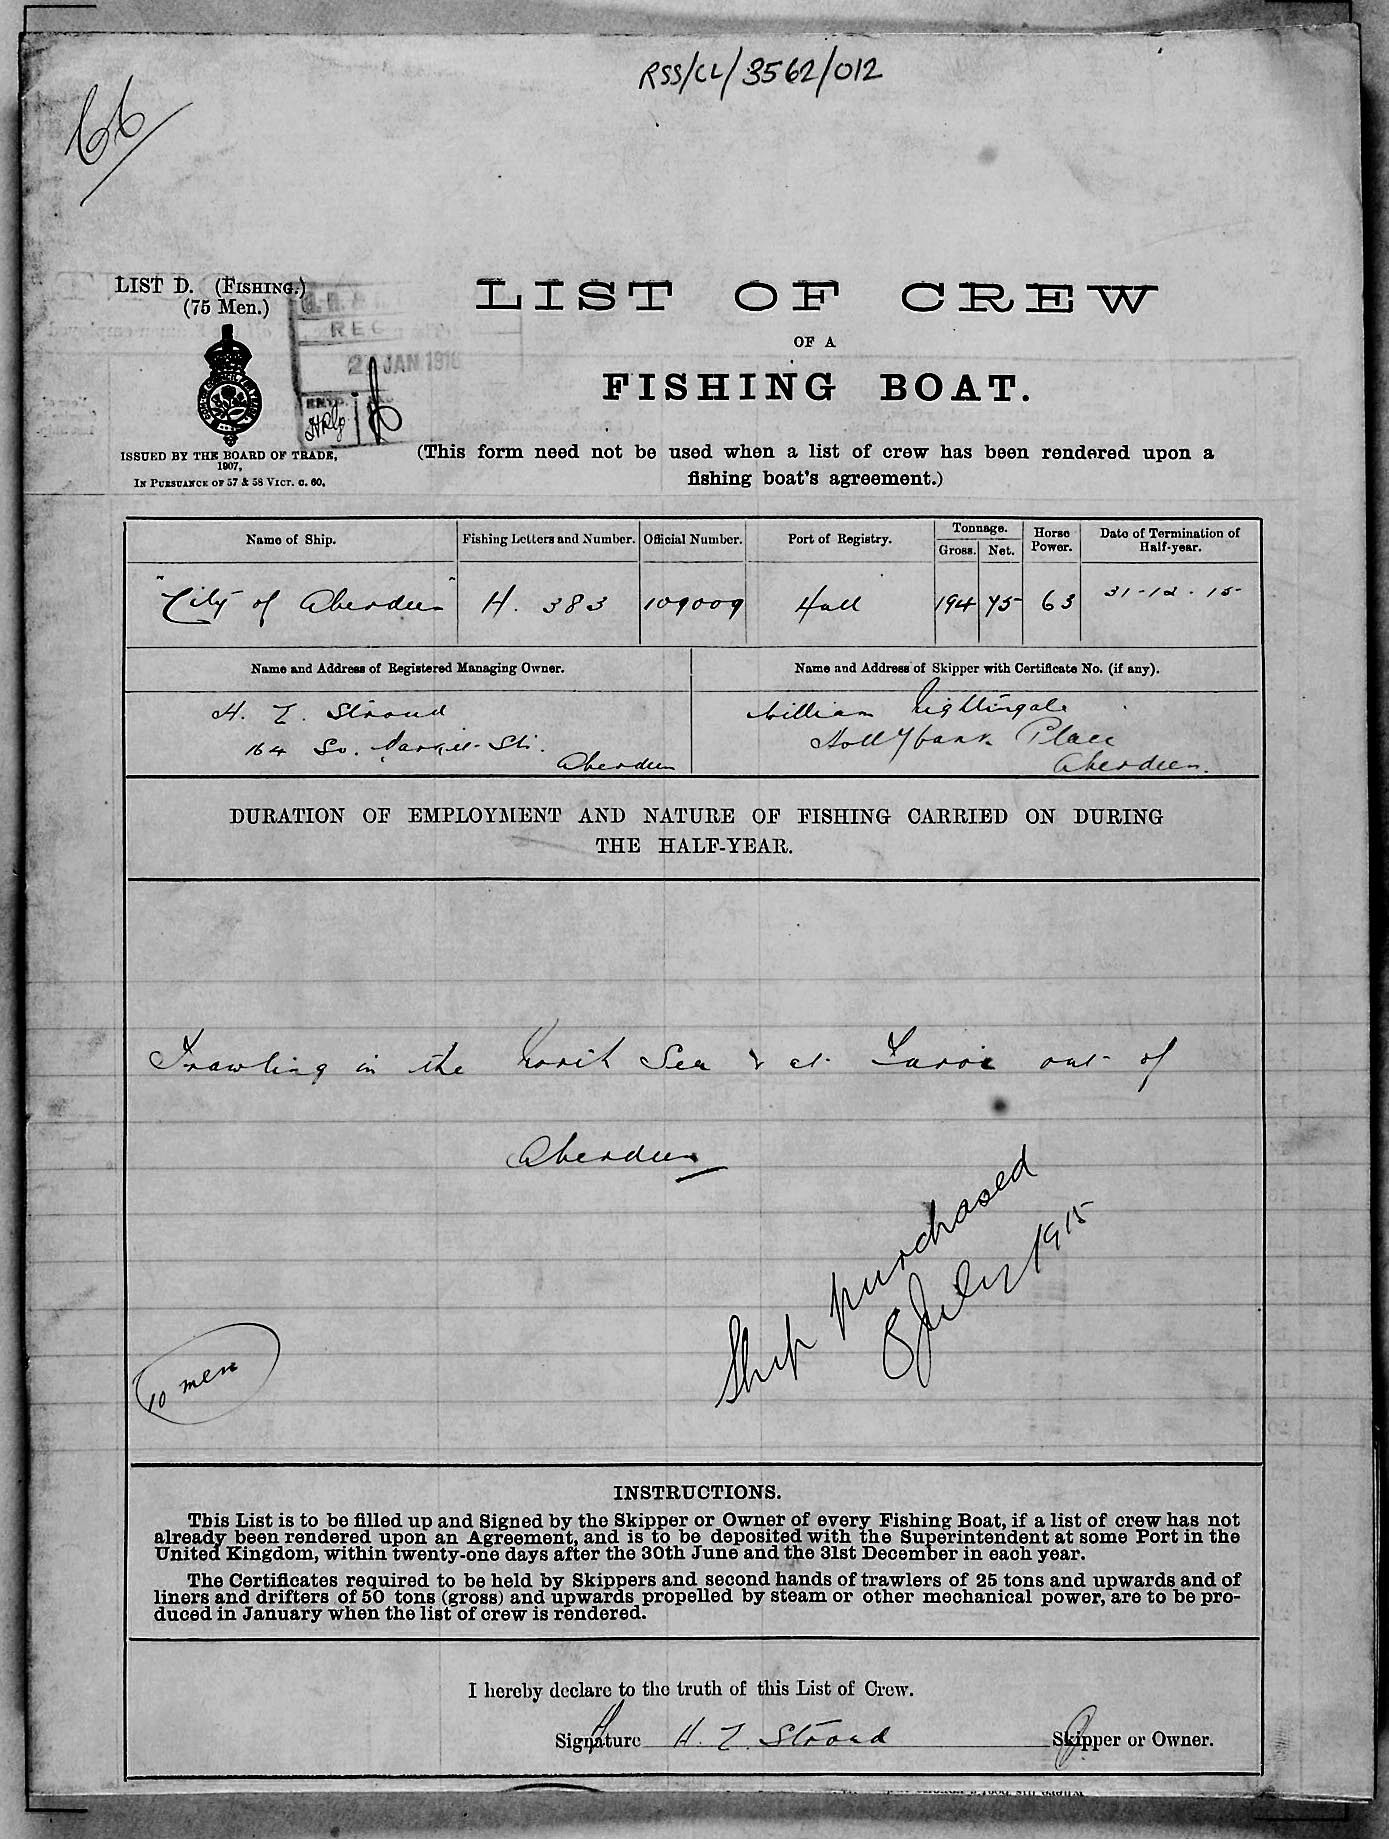 RSS/CL/3562/012
66
LIST D. (FISHING.)
(75 Men.)
REC
2 JAN 1916
ISSUED BY THE BOARD OF TRADE,
1907,
IN PURSUANCE OF 57 & 58 VICT. C. 60.
LIST OF CREW
OF A
FISHING BOAT.
(This form need not be used when a list of crew has been rendered upon a
fishing boat's agreement.)
Name of Ship. Fishing Letters and Number. Official Number. Port of Registry. Tonnage. Gross. Net. Horse Power. Date of Termination of Half-year.
"City of Aberdeen" H. 383 109009 Hull 194 75 63 31-12-15
Name and Address of Registered Managing Owner. Name and Address of Skipper with Certificate No. (if any).
H. E. Stroud William Nightingale
164 So. St. Hollybank Place
Aberdeen Aberdeen.
DURATION OF EMPLOYMENT AND NATURE OF FISHING CARRIED ON DURING
THE HALF-YEAR.
Trawling in the North Sea & at Faroe out of
Aberdeen
Ship purchased
8 July 1915
10 men
INSTRUCTIONS.
This List is to be filled up and Signed by the Skipper or Owner of every Fishing Boat, if a list of crew has not
already been rendered upon an Agreement, and is to be deposited with the Superintendent at some Port in the
United Kingdom, within twenty-one days after the 30th June and the 31st December in each year.
The Certificates required to be held by Skippers and second hands of trawlers of 25 tons and upwards and of
liners and drifters of 50 tons (gross) and upwards propelled by steam or other mechanical power, are to be pro-
duced in January when the list of crew is rendered.
I hereby declare to the truth of this List of Crew.
Signature H. E. Stroud Skipper or Owner.